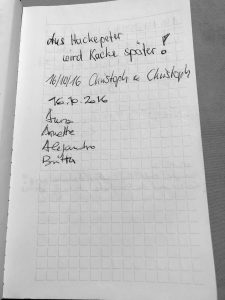 Aus Hackepeter
wird Kacke später!
16/10/16 Christoph & Christoph
16.10.2016
Anna
Annette
Alejandro
Britta